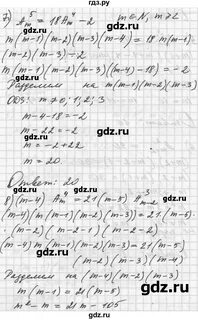 7) A⁵ₘ = 18A⁴ₘ₋₂    m ∈ N, m > 2
m(m-1)(m-2)(m-3)(m-4) = 18 (m-1)
(m-2)(m-3) - 2
m(m-1)(m-2)(m-3)(m-4)-18) = -2
Разделим на m(m-1)(m-2)(m-3)
ОДЗ: m ≠ 0, 1; 2; 3
m-4-18 = -2
m-22 = -2
m = -2+22
m = 20.
Ответ: 20
8) (m-4) A⁴ₘ = 21(m-5) A³ₘ₋₂
(m-4)m(m-1)(m-2)(m-3) = 21(m-5).
(m-2)(m-2-1)(m-2-2)
(m-4)m(m-1)(m-2)(m-3) = 21(m-5)
(m-2)(m-3)(m-4)
Разделим на (m-4)(m-2)(m-3)
m(m-1) = 21(m-5)
m² - m = 21m - 105
gdz.ru